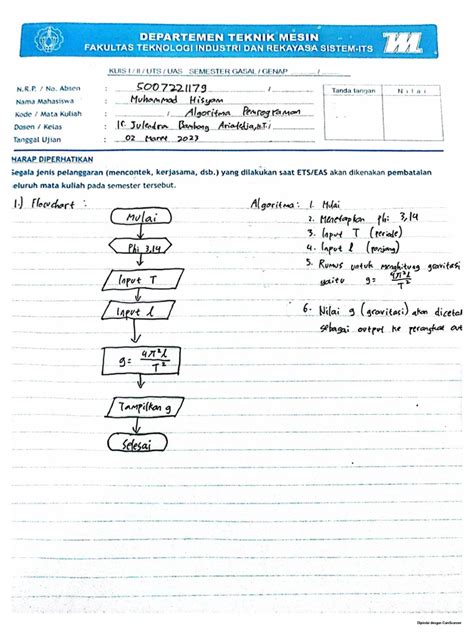 DEPARTEMEN TEKNIK MESIN
FAKULTAS TEKNOLOGI INDUSTRI DAN REKAYASA SISTEM-ITS
KUIS I / II / UTS / UAS SEMESTER GASAL / GENAP ____ / ____
N.R.P. / No. Absen : 5007221179 /
Nama Mahasiswa : Muhammad Hisyam
Kode / Mata Kuliah : / Algoritma Pemrograman
Dosen / Kelas : Ir. Julendra Bambang
Tanggal Ujian : 02 Maret 2023
Tanda tangan
N i l a i
HARAP DIPERHATIKAN
Segala jenis pelanggaran (mencontek, kerjasama, dsb.) yang dilakukan saat ETS/EAS akan dikenakan pembatalan
seluruh mata kuliah pada semester tersebut.
1.) Flowchart :
Mulai
Phi 3,14
Input T
Input l
g = 4π²l / T²
Tampilkan g
Selesai
Algoritma : 1. Mulai
2. Menetapkan phi 3,14
3. Input T (periode)
4. Input l (panjang)
5. Rumus untuk menghitung gravitasi
yaitu g = 4π²l / T²
6. Nilai g (gravitasi) akan dicetak
sebagai output ke perangkat out
Dipindai dengan CamScanner